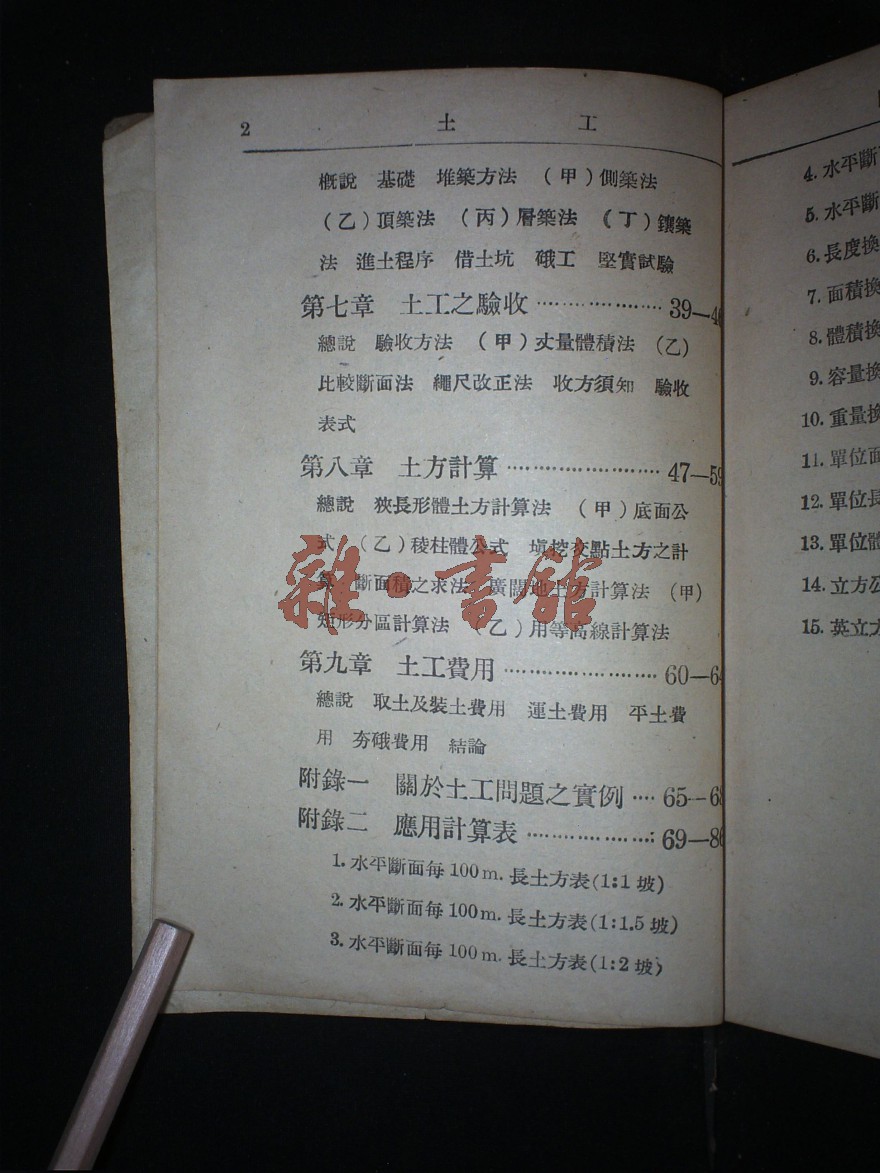 2 土 工
概說 基礎 堆築方法 （甲）側築法
（乙）頂築法 （丙）層築法 （丁）鑲築
法 進土程序 借土坑 硪工 堅實試驗
第七章 土工之驗收 ………………… 39—46
總說 驗收方法 （甲）丈量體積法 （乙）
比較斷面法 繩尺改正法 收方須知 驗收
表式
第八章 土方計算 …………………… 47—59
總說 狹長形體土方計算法 （甲）底面公
式 （乙）稜柱體公式 塡挖交點土方之計
算 斷面積之求法 廣闊地土方計算法 （甲）
矩形分區計算法 （乙）用等高線計算法
第九章 土工費用 …………………… 60—64
總說 取土及裝土費用 運土費用 平土費
用 夯硪費用 結論
附錄一 關於土工問題之實例 …… 65—68
附錄二 應用計算表 ………………… 69—86
1. 水平斷面每 100 m. 長土方表(1:1 坡)
2. 水平斷面每 100 m. 長土方表(1:1.5 坡)
3. 水平斷面每 100 m. 長土方表(1:2 坡)
雜·書館
4. 水平斷
5. 水平斷
6. 長度換
7. 面積換
8. 體積換
9. 容量換
10. 重量換
11. 單位面
12. 單位長
13. 單位體
14. 立方公
15. 英立方